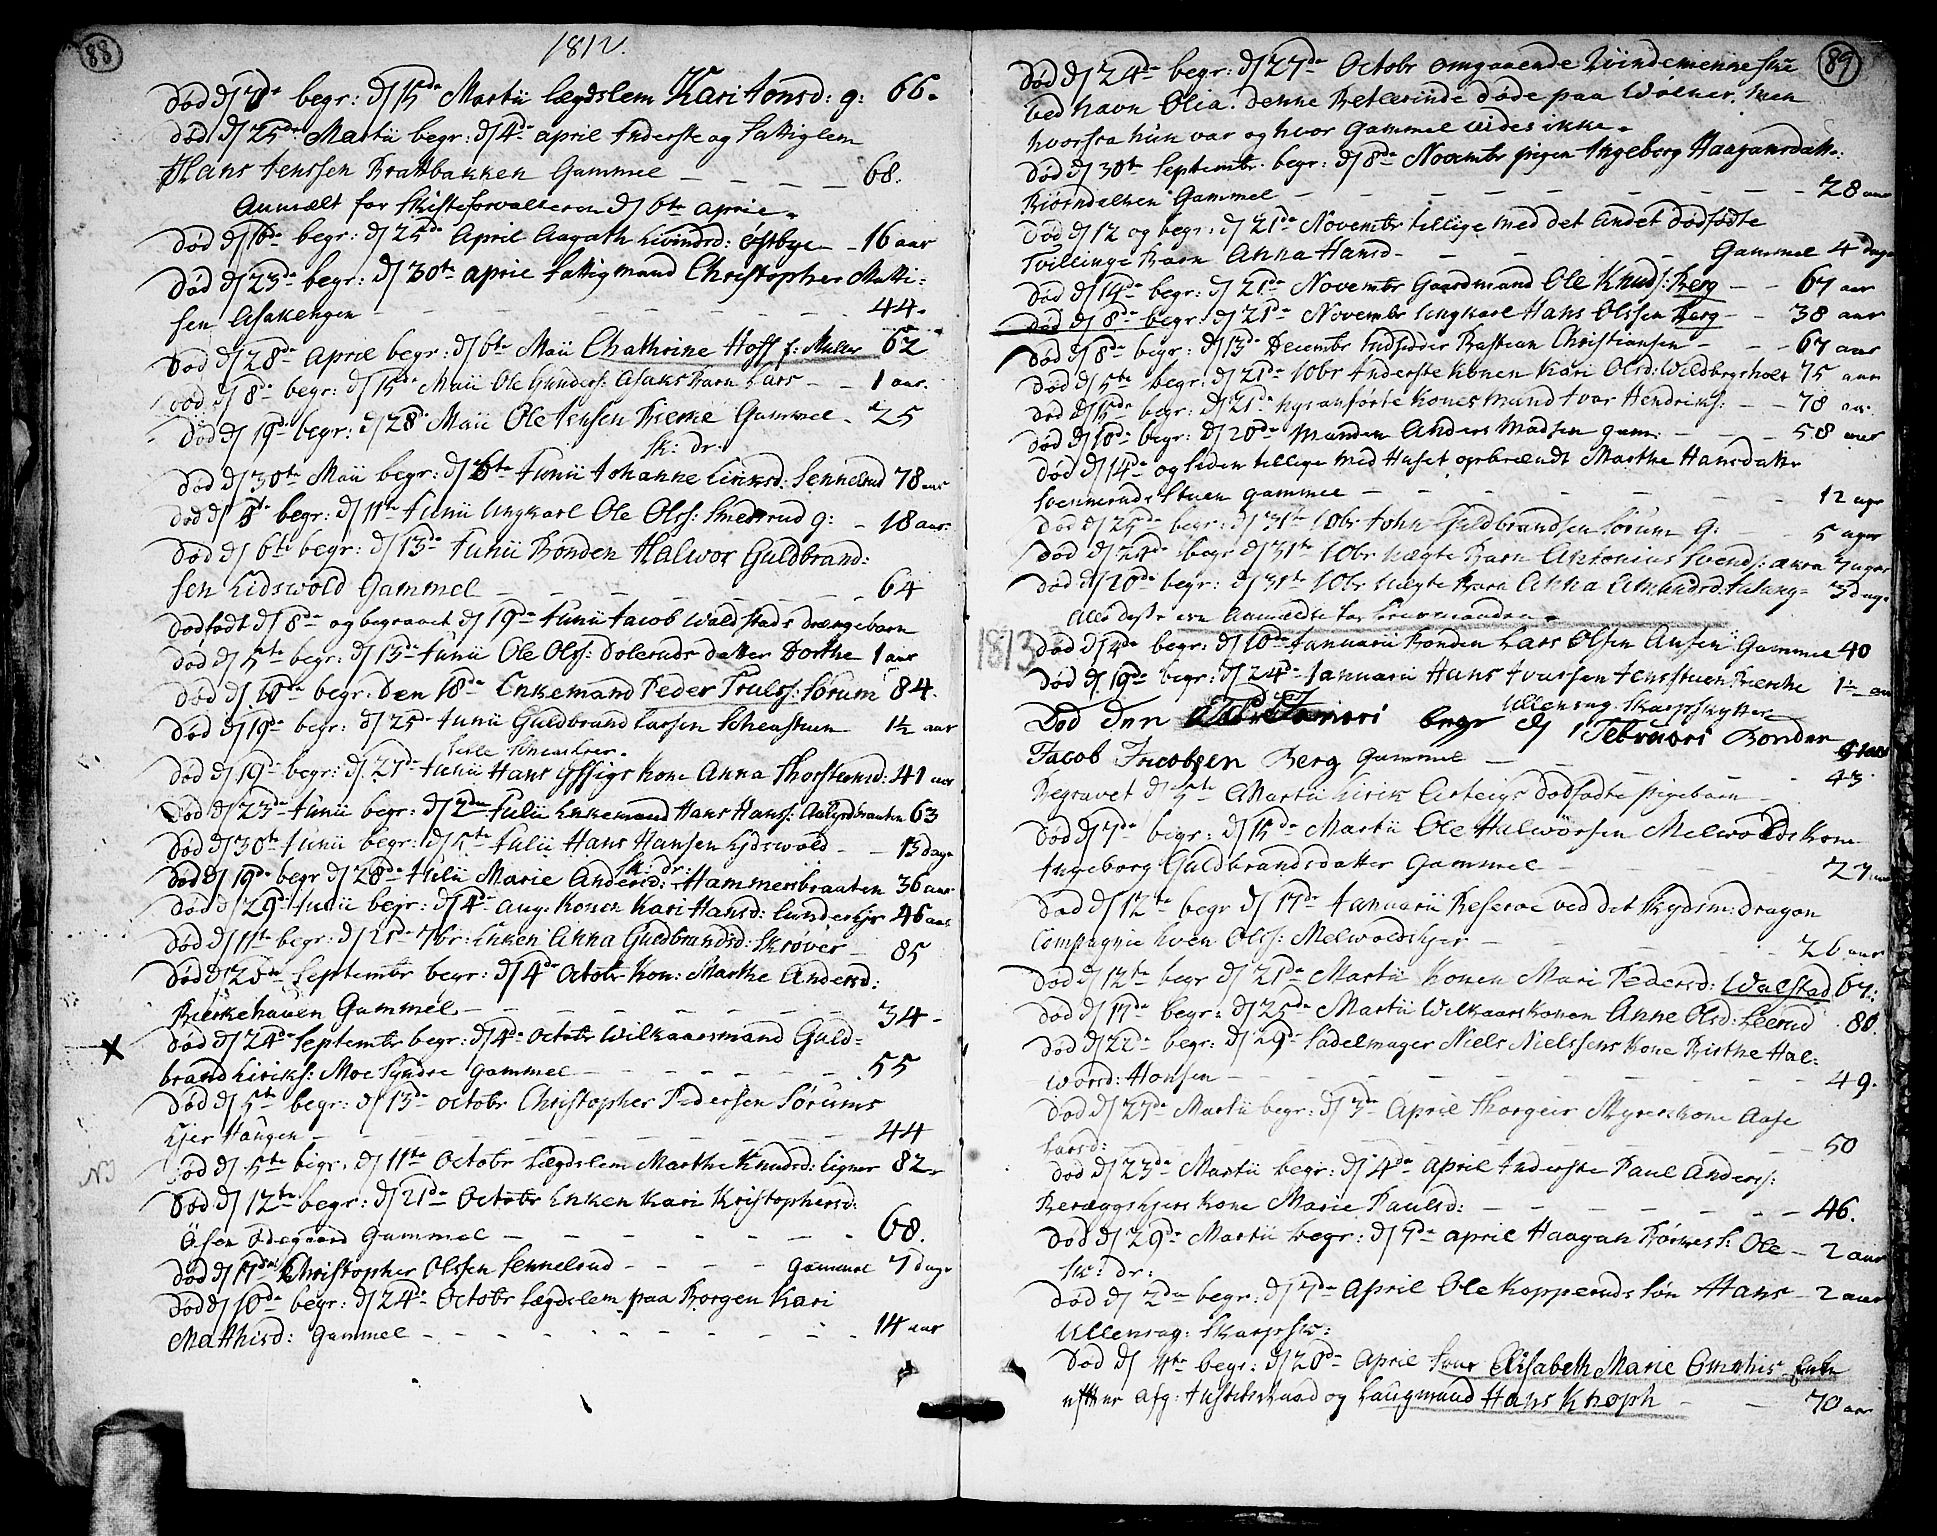 88
1812.
Død d 7de begr: d 15de Martii Lægdslem Kari Jonsd: g: 66.
Død d 25de Martii begr: d 4de April Inderste og Fattiglem
Hans Jenssen Brattbakken Gammel — — — — 68.
Anmælt for Skifteforvalteren d 6te April.
Død d 16de begr: d 25de April Aagath Eivindsd: Østbye — — 16 aar
Død d 23de begr: d 30te April Fattigmand Christopher Matti-
sen Asakengen — — — — 44.
Død d 28de April begr: d 6te Maii Chathrine Hoff f: Muller 62
Død d 8de begr: d 15de Maii Ole Gunders: Asaks Barn Lars — — 1 aar.
Død d 19de begr: d 28de Maii Ole Jensen Bierke Gammel 25
Sk: dr:
Død d 30te Maii begr: d 6te Junii Johanne Eriksd: Sennerud 78 aar
Død d 5te begr: d 11te Junii Ungkarl Ole Olss: Smedsrud g: — 18 aar.
Død d 6te begr: d 13de Junii Bonden Halwor Guldbrand-
sen Eidswold Gammel — — — — 64
Dødfødt d 8de og begravet d 19de Junii Jacob Waldstads drængebarn
Død d 5te begr: d 13de Junii Ole Olss: Døleruds datter Dorthe 1 aar
Død d 10de begr: den 18de Enkemand Peder Trulss: Sørum 84.
Død d 19de begr: d 25de Junii Guldbrand Larsen 1½ aar
Død d 19de begr: d 27de Junii Hans Kone Anna Thorstensd: 41 aar
Død d 23de Junii begr: d 2den Julii Enkemand Hans Hans: 63
Død d 30te Junii begr: d 5te Julii Hans Hansen Ejdswold — — 13 dage
Sk: dr:
Død d 19de begr d 28de Julii Marie Andersd: Hammersbraaten 36 aar
Død d 29de Julii begr: d 4de Aug. Konen Kari Hansd: 46 aar
Død d 11te begr: d 20de 7br: Enken Anna Guldbrandsd: Skrøver — 85
Død d 25de Septembr begr: d 4de Octobr Kon: Marthe Andersd:
Bierkehauen Gammel — — — — 34 —
Død d 24de Septembr begr: d 4de Octobr Wilkaarsmand Guld-
brand Eiriks: Moe Syndre Gammel — — — — 55
Død d 5te begr: d 13de Octobr Christopher Pedersen Sørums
Ejer Haugen — — — — 44
Død d 5te begr: d 11te Octobr Lægdslem Marthe Knudsd: 82.
Død d 12te begr: d 21de Octobr Enken Kari Kristophersd:
Åsen Ødegaard Gammel — — — — 68.
Død d 17de Christopher Olssen Sennerud — — — Gammel 7 dage
Død d 10de begr: d 24de Octobr Lægdslem paa Borgen Kari
Mathisd: Gammel — — — — 14 aar
89
Død d 24de begr: d 27de Octobr omgaaende Qvindemenneske
ved navn Olia. Denne Betlerinde døde paa Wølner. Men
hvorfra hun var og hvor Gammel vides ikke.
Død d 30te Septembr. begr: d 8de Novembr pigen Ingeborg Haagansdatt:
Biørndalen Gammel — — — — 28 aar
Død d 12 og begr: d 21de Novembr tillige med det andet dødfødte
Tvillinge Barn Anna Hansd — — — — Gammel 4 dage
Død d 14de begr: d 21de Novembr Gaardmand Ole Knuds: Berg — — 67 aar
Død d 8de begr: d 21de Novembr Ungkarl Hans Olssen Berg — — 38 aar
Død d 8de begr: d 13de Decembr Indsidder Bastian Christiansen — — 67 aar
Død d 5te begr: d 21de 10br Inderste Konen Kari Olsd: 75 aar
Død d 15de begr: d 21de Nysanførte Kones Mand Ivar Hendriks: — — 78 aar.
Død d 10de begr: d 20de Manden Anders Madsen gam: — — — 58 aar
Død d 14de og siden tillige med Huset opbrændt Marthe Hansdatter
Svenneruds stuen gammel — — — — 12 uger
Død d 25de begr: d 31te 10br John Guldbrandsen Sørum g: — 5 uger
Død d 24de begr d 31te 10br Uægte Barn Antonius Svends: 7 uger
Død d 20de begr: d 31te 10br Uægte Barn Anna Amundsd: 3 dage
Alle disse ere Anmældte for
1813
Død d 4de begr: d 10de Januarii Bonden Lars Olsen Aasen Gammel 40
Død d 19de begr: d 24de Januarii Hans Ivarssen Jensstuen Bierche 1½ aar
Ullensag. Skarpskytter
Død den begr d 1 Februari Bonden
Jacob Jacobsen Berg Gammel — — — 43
Begravet d 5te Martii Eirik dødfødte pigebarn —
Død d 7de begr: d 15de Martii Ole Halworsen Melwolds Kone
Ingeborg Guldbrandsdatter Gammel — — — 27 aar
Død d 12te begr d 17de Januarii Reserve ved det Dragon
Compagnie Even Olss: Melwoldsejer — — — 26 aar
Død d 13te begr d 21de Martii Konen Mari Pedersd: Walstad 67.
Død d 17de begr: d 25de Martii Wilkaarskonen Anne Olsd: Leerud 80.
Død d 22de begr: d 29de Sadelmager Niels Nielssens Kone Birthe Hal-
worsd: Hansen — — — — 49.
Død d 27de Martii begr: d 3de April Thorgeir Myrers Kone Aase
Larsd: — — — — 50
Død d 23de Martii begr: d 4de April Inderste Paul Anderss:
Berøggshjers Kone Marie Paulsd: — — — — 46.
Død d 29de Martii begr: d 7de April Haagan S: Ole — 2 aar
Sk: dr:
Død d 2den begr: d 7de April Ole Kopperuds søn Hans — 2 aar
Ullensag: Skarpsk:
Død d 11te begr: d 20de April Frue Elisabeth Marie Enke
efter afg: Justitsraad og Laugmand Hans Knoph — — 70 aar